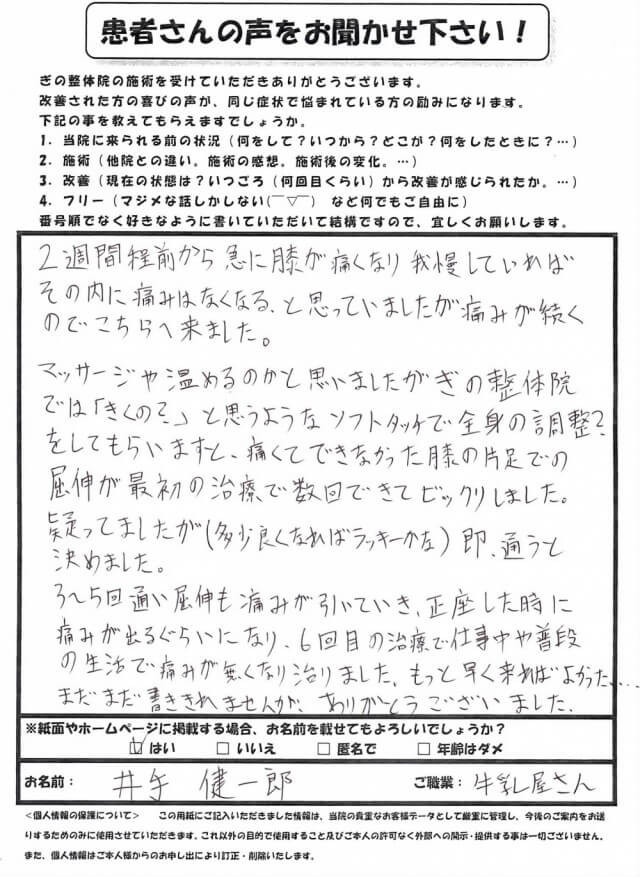 患者さんの声をお聞かせ下さい！
ぎの整体院の施術を受けていただきありがとうございます。
改善された方の喜びの声が、同じ症状で悩まれている方の励みになります。
下記の事を教えてもらえますでしょうか。
1．当院に来られる前の状況（何をして？いつから？どこが？何をしたときに？…）
2．施術（他院との違い。施術の感想。施術後の変化。…）
3．改善（現在の状態は？いつごろ（何回目くらい）から改善が感じられたか。…）
4．フリー（マジメな話しかしない(￣▽￣)　など何でもご自由に）
番号順でなく好きなように書いていただいて結構ですので、宜しくお願いします。
2週間程前から急に膝が痛くなり我慢していれば
その内に痛みはなくなる、と思っていましたが痛みが続く
のでこちらへ来ました。
マッサージや温めるのかと思いましたがぎの整体院
では「きくの？」と思うようなソフトタッチで全身の調整？
をしてもらいますと、痛くてできなかった膝の片足での
屈伸が最初の治療で数回できてビックリしました。
疑ってましたが(多少良くなればラッキーかな)即、通うと
決めました。
3〜5回通い屈伸も痛みが引いていき、正座した時に
痛みが出るぐらいになり、6回目の治療で仕事中や普段
の生活で痛みが無くなり治りました。もっと早く来ればよかった……
まだまだ書ききれませんが、ありがとうございました。
※紙面やホームページに掲載する場合、お名前を載せてもよろしいでしょうか？
☑ はい　□ いいえ　□ 匿名で　□ 年齢はダメ
お名前：井手 健一郎　ご職業：牛乳屋さん
<個人情報の保護について>　この用紙にご記入いただきました情報は、当院の貴重なお客様データとして厳重に管理し、今後のご案内をお送
りするためのみに使用させていただきます。これ以外の目的で使用すること及びご本人の許可なく外部への開示・提供する事は一切ございません。
また、個人情報はご本人様からのお申し出により訂正・削除いたします。